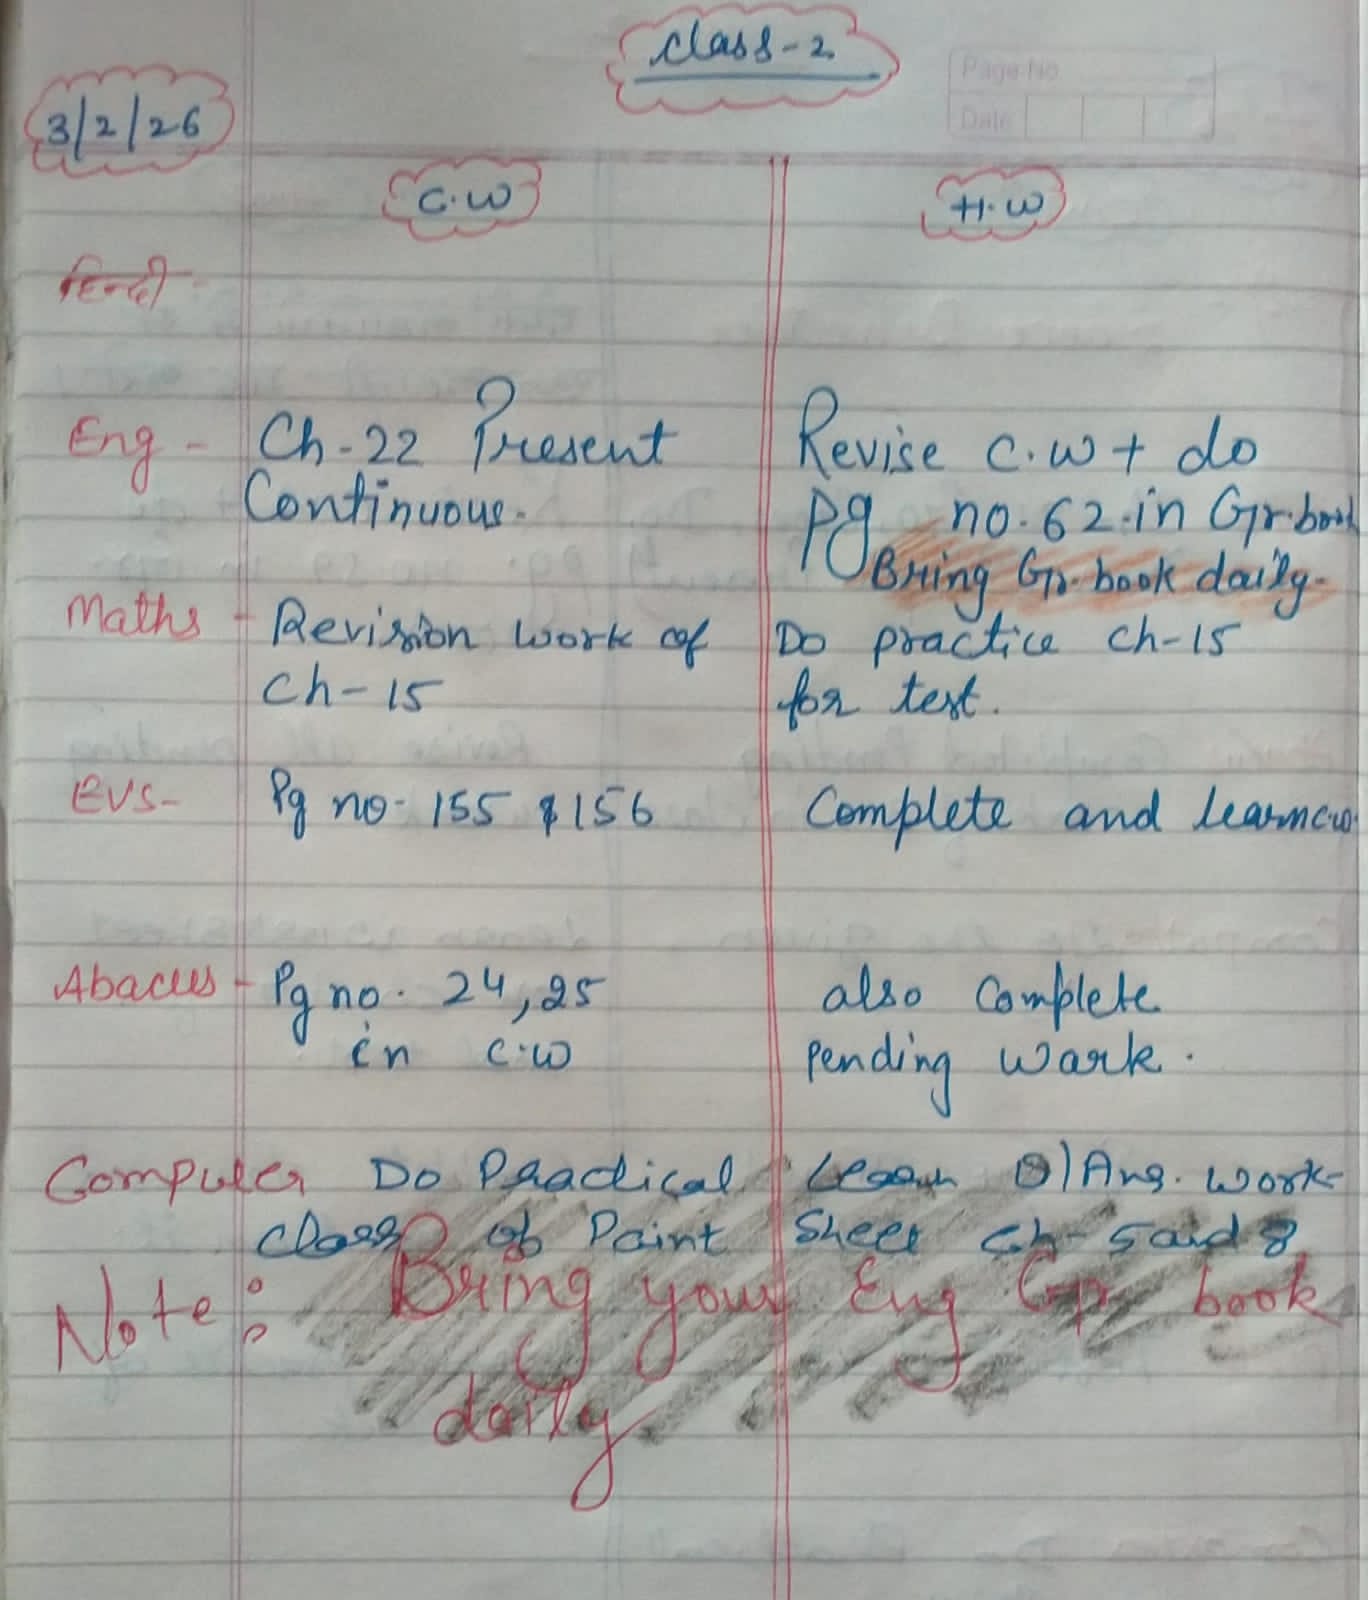 class-2
Page No
Date
3/2/26
C.W
H.W
हिन्दी -
Eng - Ch-22 Present Revise c.w + do
Continuous. Pg no. 62 in Gr. book
Bring Gr. book daily.
Maths - Revision work of Do practice ch-15
Ch-15 for test.
EVS- Pg no- 155 & 156 Complete and learn c.w.
Abacus - Pg no. 24,25 also Complete
in c.w pending work.
Computer Do Practical Learn Q/Ans. work-
class of Paint Sheet ch-5 and 8
Note: Bring your Eng Gr book
daily.